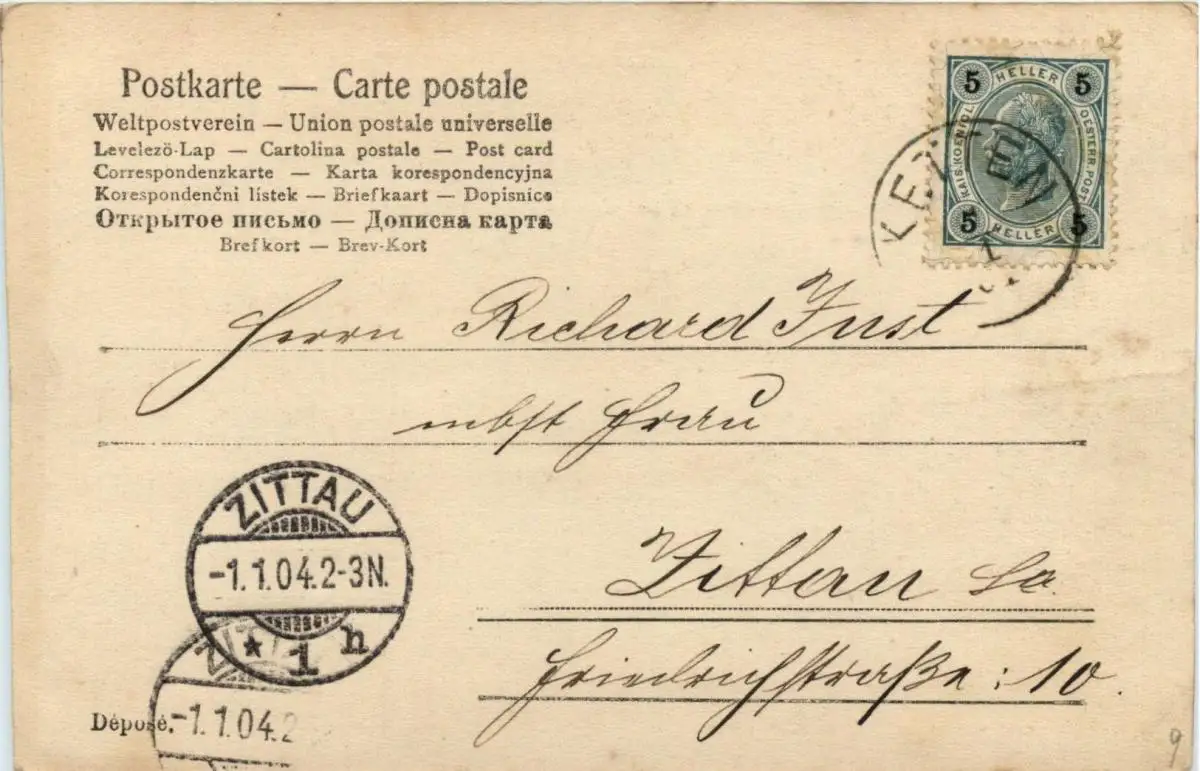 Postkarte — Carte postale
Weltpostverein — Union postale universelle
Levelezö-Lap — Cartolina postale — Post card
Correspondenzkarte — Karta korespondencyjna
Korespondenčni lístek — Briefkaart — Dopisnice
Открытое письмо — Дописна карта
Brefkort — Brev-Kort
5 HELLER 5
KAIS. KOENIGL. OESTERR. POST
5 HELLER 5
Herrn Richard Just
nebst Frau
ZITTAU
-1.1.04.2-3N.
* 1 h
Zittau Sa.
Friedrichstraße: 10.
Déposé.
ZITT
-1.1.04.2
9